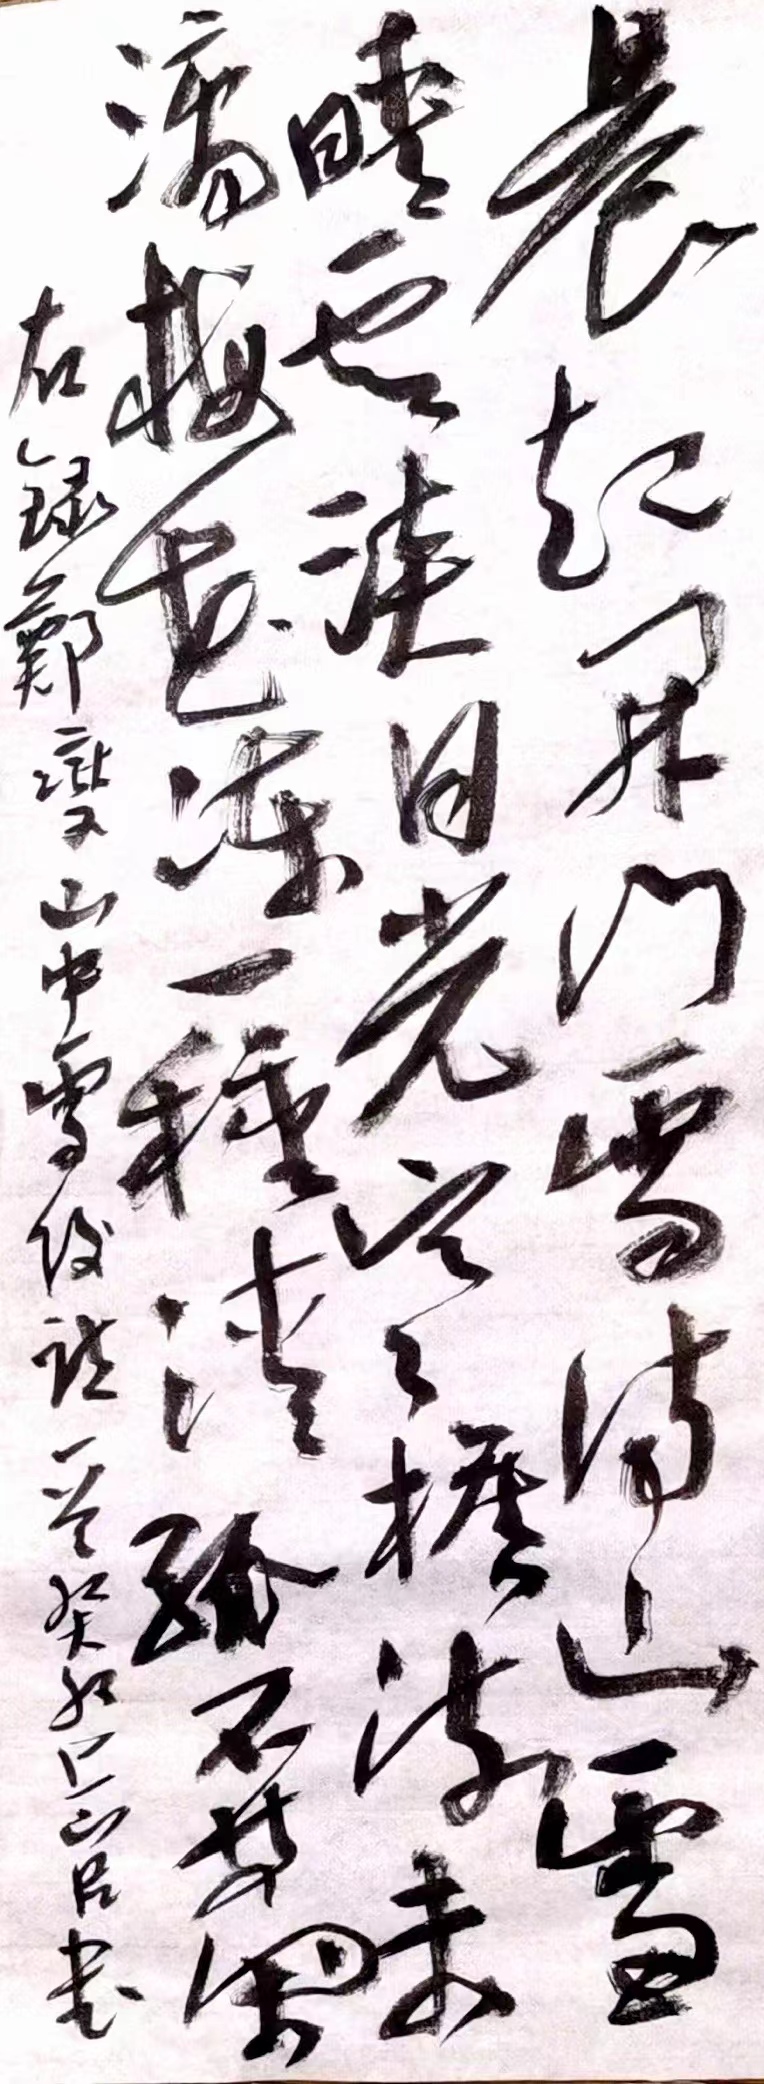 晨起開門雪滿山雪
晴雲淡日光寒檐流未
滴梅花凍一種清孤不等閑
右録鄭燮山中雪後詩一首癸卯書